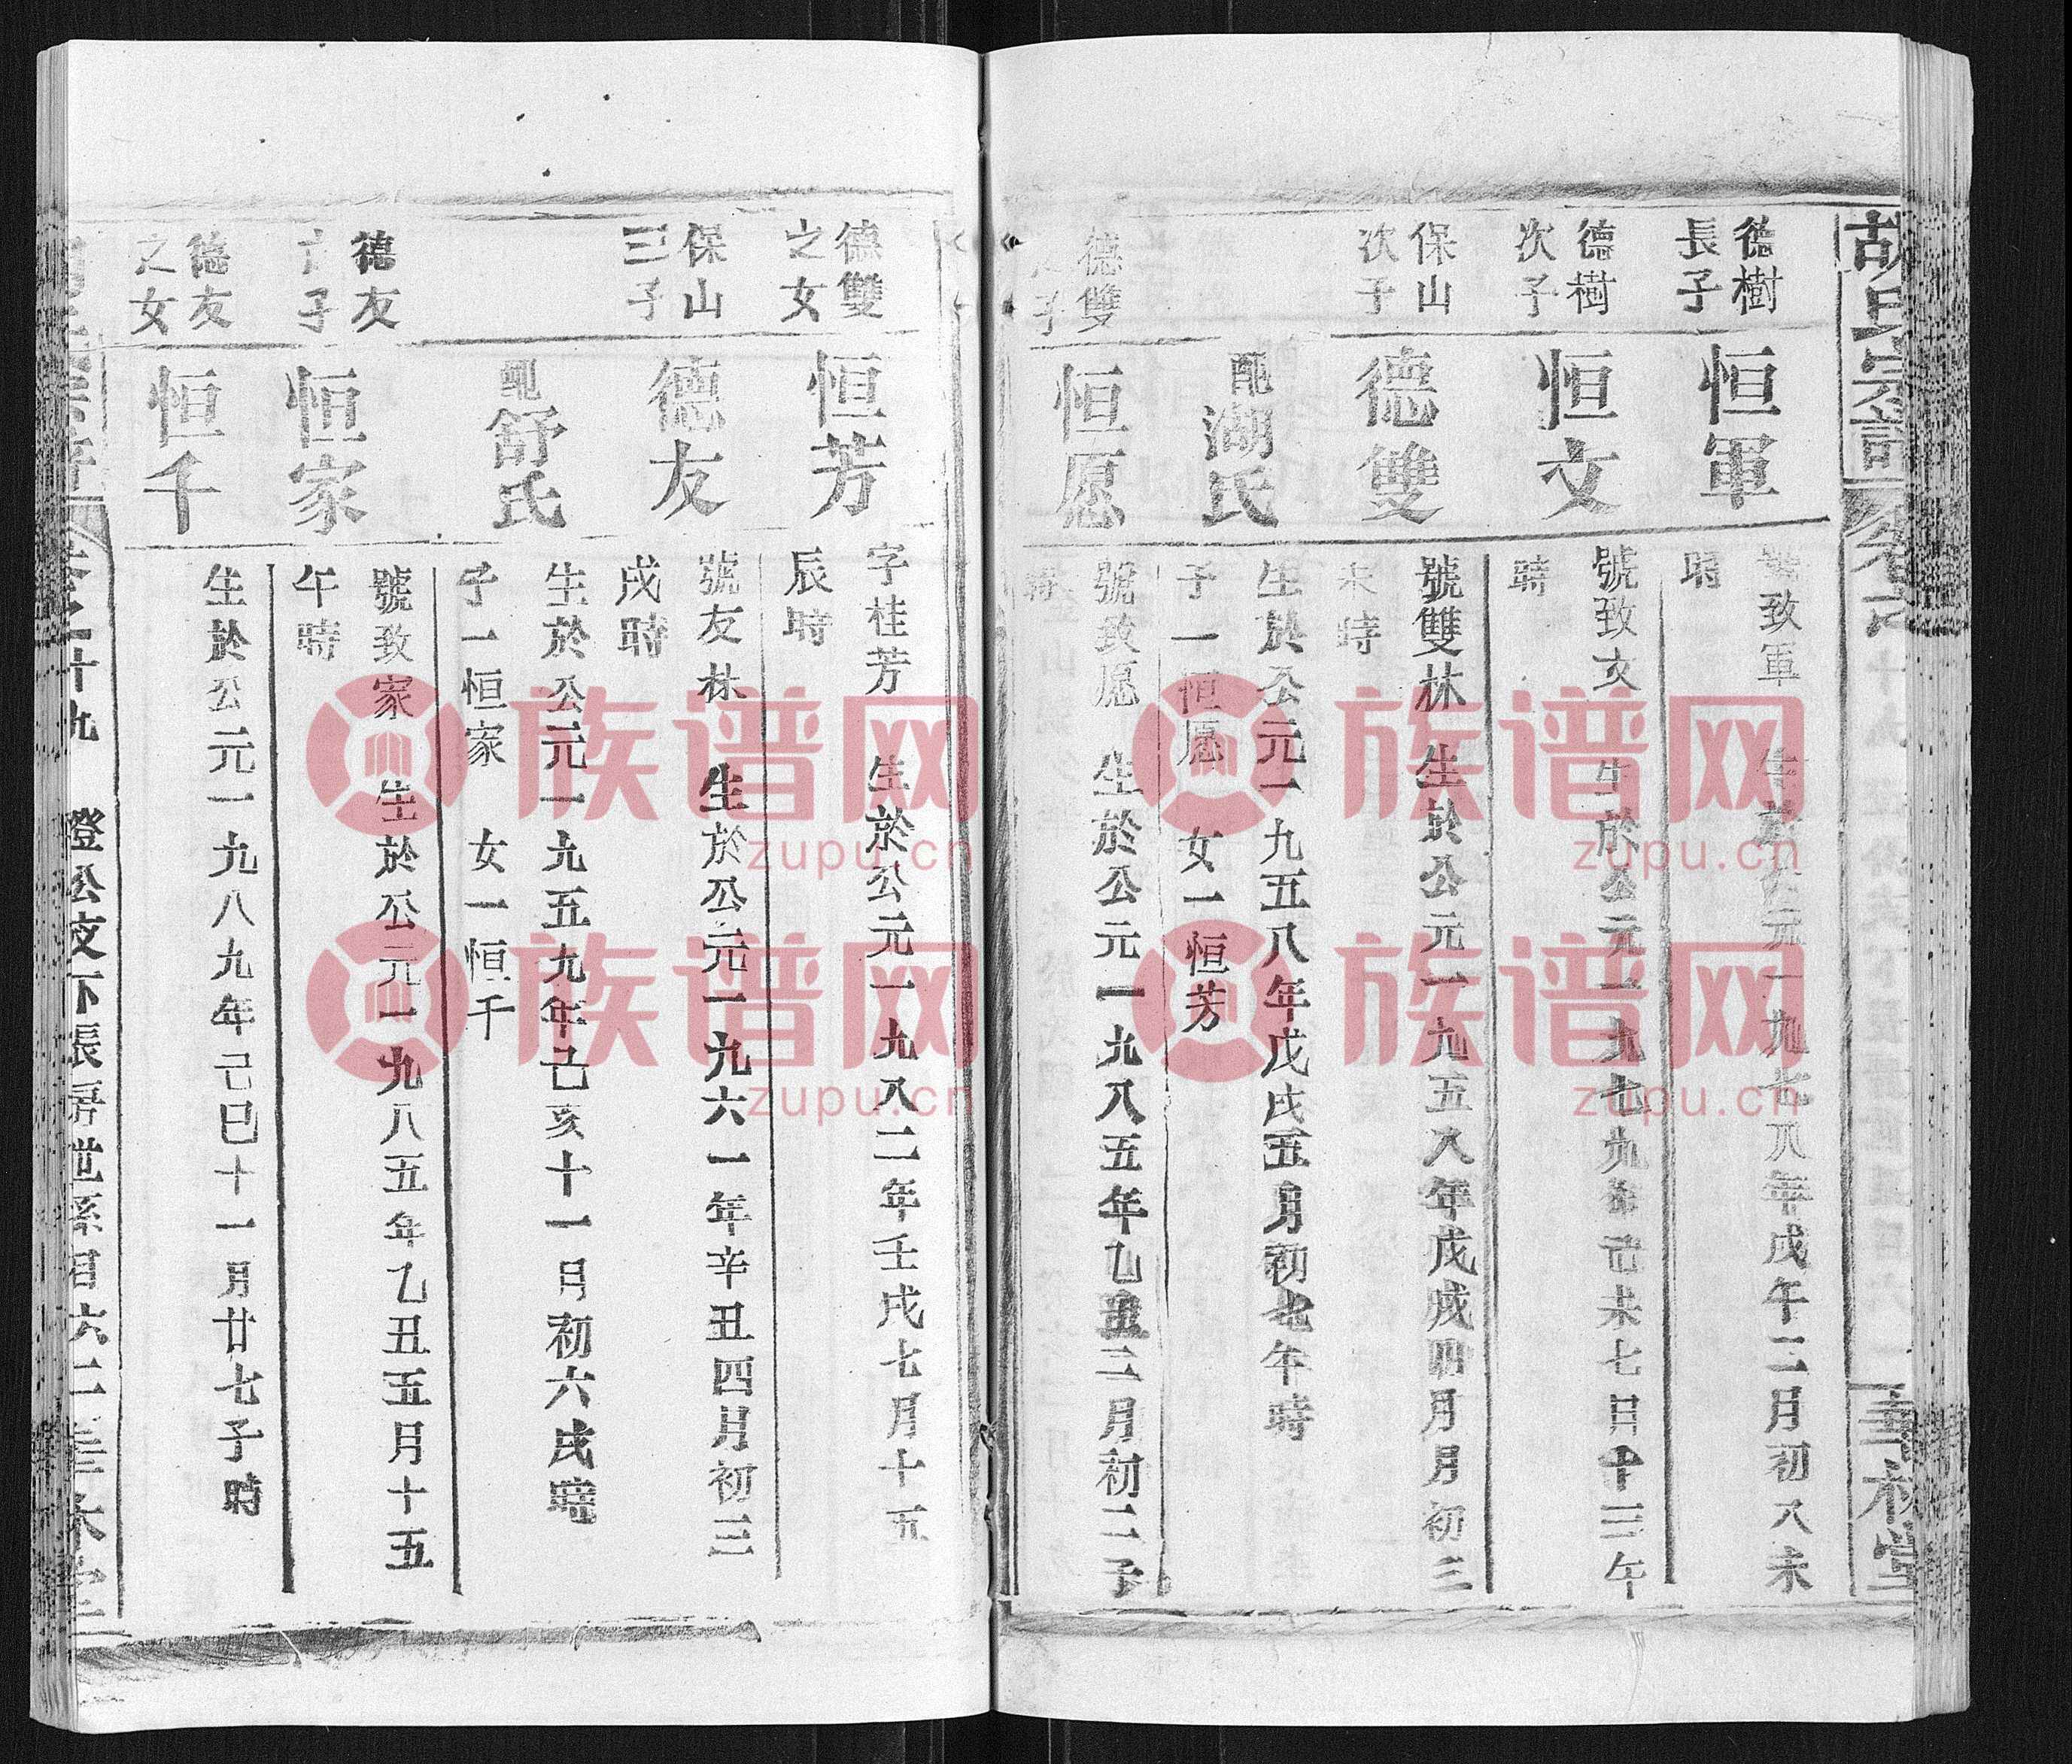 胡氏宗譜
德樹
長子
恒軍
致軍 生於公元一九七八年戊午二月初八未
時
德樹
次子
恒文
號致文 生於公元一九七九年己未七月十三午
時
保山
次子
德雙
號雙林 生於公元一九五八年戊戌四月初三
未時
配湖氏
生於公元一九五八年戊戌五月初七午時
子一恒愿 女一恒芳
德雙
之子
恒愿
號致愿 生於公元一九八五年乙丑三月初二子
時
德雙
之女
恒芳
字桂芳 生於公元一九八二年壬戌七月十五
辰時
保山
三子
德友
號友林 生於公元一九六一年辛丑四月初三
戌時
配舒氏
生於公元一九五九年己亥十一月初六戌時
子一恒家 女一恒千
德友
之子
恒家
號致家 生於公元一九八五年乙丑五月十五
午時
德友
之女
恒千
生於公元一九八九年己巳十一月廿七子時
卷之十九 澄公支下長房世系
族谱网
zupu.cn
族谱网
zupu.cn
族谱网
zupu.cn
族谱网
zupu.cn